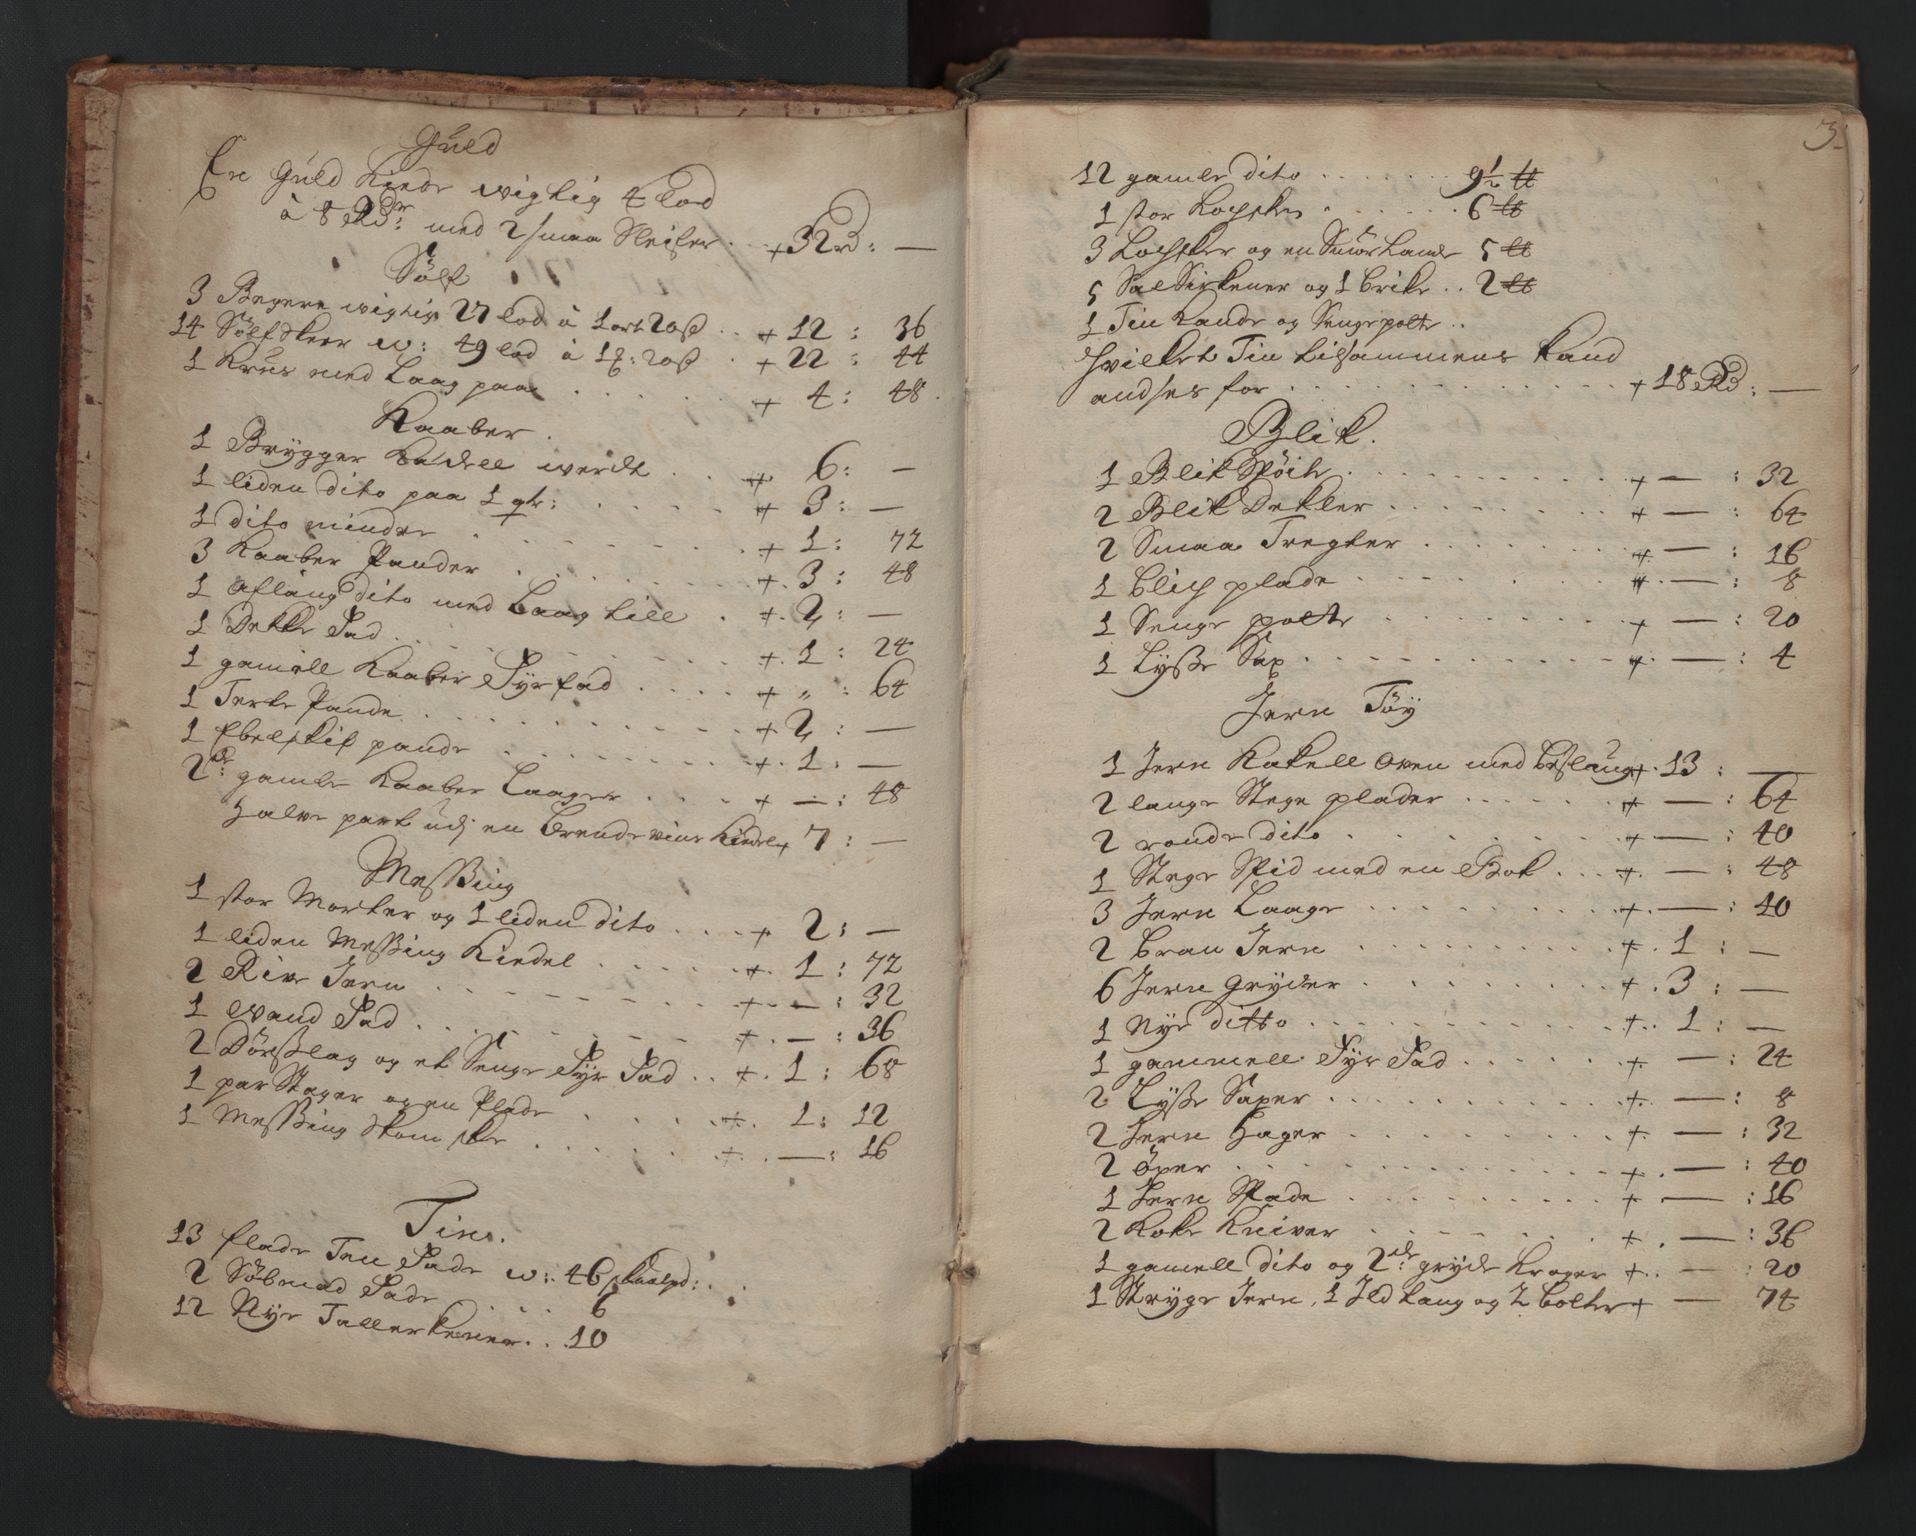 Guld
En Guld Kiede wigtig 4 Lod
à 8 Rdr: med 2 smaa Sleifer + 32 rd: —
Sølf
3 Begere wigtig 27 lod à 1 ort 20 ß + 12 : 36
14 Sølf Skeer w: 49 lod à 1 20 ß + 22 : 44
1 Kruus med Laag paa + 4 : 48
Kaaber.
1 Brygger Kiedell werdt + 6 : —
1 liden dito paa 1 qtr: + 3 : —
1 dito mindre + 1 : 72
3 Kaaber Pander + 3 : 48
1 aflang dito med Laag till + 2 : —
1 Dekke Fad + 1 : 24
1 gamell Kaaber Fyrfad + „ : 64
1 Terte Pande + 2 : —
1 Ebelskif pande + 1 : —
2de: gamle Kaaber Laager + — : 48
Halve part udj en Brendevins Kiedel + 7 : —
Messing
1 stor Morter og 1 liden dito + 2 : —
1 liden Messing Kiedel + 1 : 72
2 Rive Jern + — : 32
1 Vand Fad + — : 36
2 Dørslag og et Senge Fyr Fad + 1 : 68
1 par Stager og en Plade + 1 : 12
1 Messing Skom Skee + — : 16
Tin.
13 flade Tin Fade w: 46 skaalpd:
2 Sølmed Fade 6
12 Nye Tallerkener 10
3
12 gamle dito 9½ ℔
1 stor 6 ℔
3 og en Smør Kande 5 ℔
5 Salsirkener og 1 Brike 2 ℔
1 Tin Kande og Senge potte
Hvilket Tin tilsammens kand
andsees for + 18 Rd: —
Blik.
1 Blik Spøite + — : 32
2 Blik Dekler + — : 64
2 Smaa Tregter + — : 16
1 Blich plade + — : 8
1 Senge potte + — : 20
1 Lysse Sax + — : 4
Jern Tøy
1 Jern Kakell oven med beslaug + 13 : —
2 lange Stege plader + — : 64
2 ronde dito + — : 40
1 Stege Spid med en Bok + — : 48
3 Jern Laage + — : 40
2 Bran Jern + 1 : —
6 Jern Gryder + 3 : —
1 Nye ditto + 1 : —
1 gammell Fyr Fad + — : 24
2 Lysse Saxer + — : 8
2 Jern Hager + — : 32
2 Øxer + — : 40
1 Jern Spade + — : 16
2 Koke Kniver + — : 36
1 gamell dito og 2de: gryde Kroger + — : 20
1 Stryge Jern, 1 Ild tang og 2 bolter + — 74